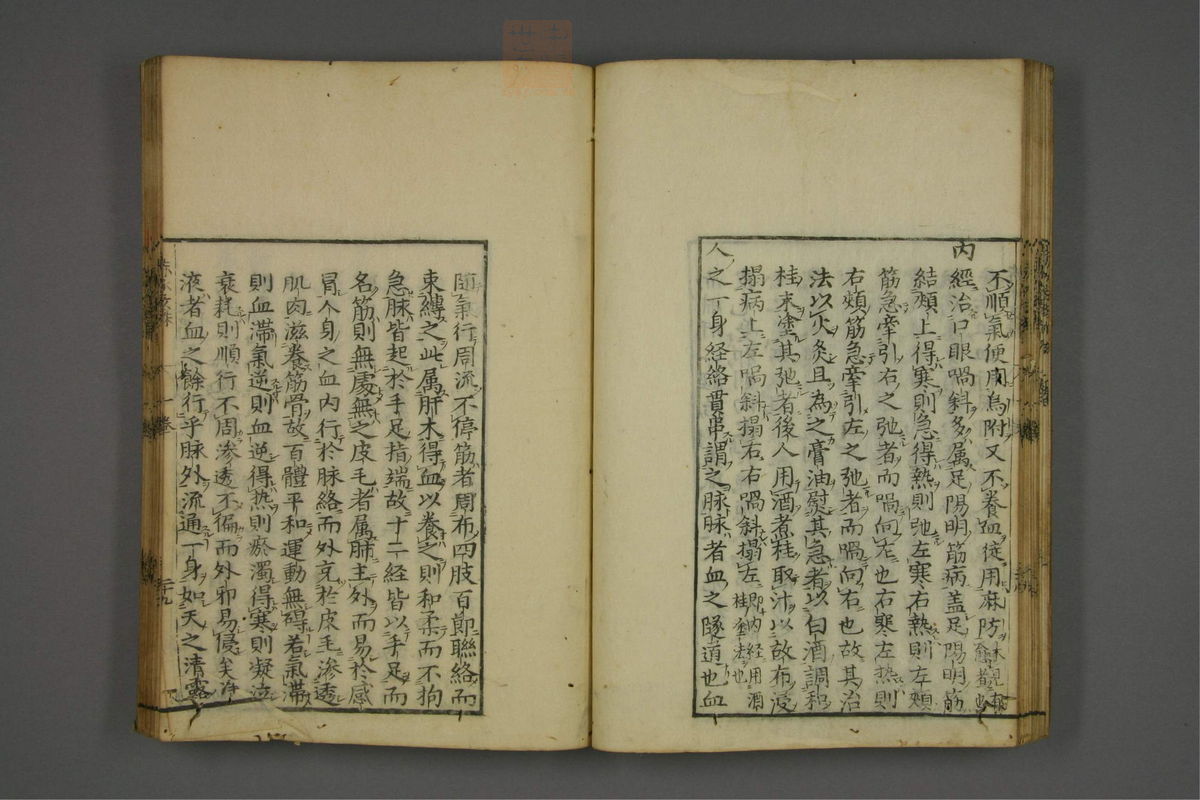 不順氣便用烏附又不養血徒用麻防
内經治口眼喎斜多属足陽明筋病盖足陽明筋
結頰上得寒則急得熱則弛左寒右熱則左頰
筋急牽引右之弛者而喎向左也右寒左热則
右頰筋急牽引左之弛者而喎向右也故其治
法以火灸且為之膏油熨其急者以白酒調和
桂末塗其弛者後人用酒煮桂取汁以故布浸
搨病上左喎斜搨右右喎斜搨左即内経用酒
桂塗法也
人之一身経絡貫串謂之脉脉者血之隧道也血
随氣行周流不停筋者周布四肢百節聯絡而
束縛之此属肝木得血以養之則和柔而不拘
急脉皆起於手足指端故十二経皆以手足而
名筋則無處無之皮毛者属肺主外而易於感
冒人身之血内行於脉絡而外充於皮毛滲透
肌肉滋養筋骨故百體平和運動無碍若氣滞
則血滞氣逆則血逆得热則瘀濁得寒則凝泣
衰耗則順行不周滲透不徧而外邪易侵矣津
液者血之餘行乎脉外流通一身如天之清露
一卷
二十九